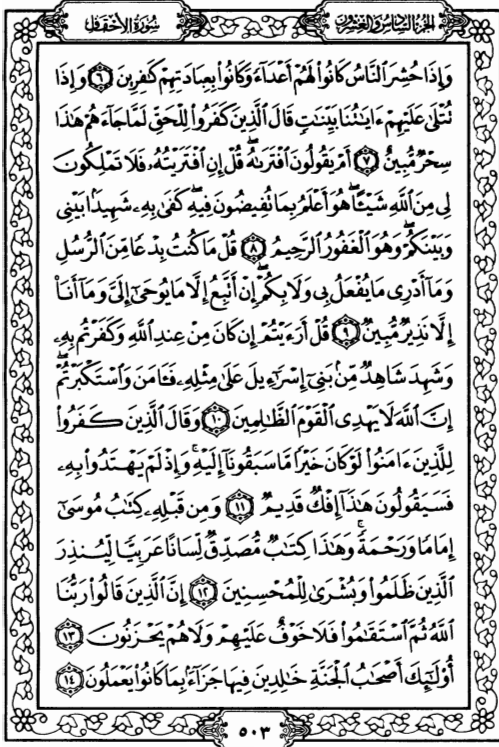 سُورَةُ الأَحْقَافِ الجُزْءُ السَّادِسُ وَالعِشْرُونَ
وَإِذَا حُشِرَ ٱلنَّاسُ كَانُوا۟ لَهُمْ أَعْدَآءً وَكَانُوا۟ بِعِبَادَتِهِمْ كَٰفِرِينَ ٦ وَإِذَا
تُتْلَىٰ عَلَيْهِمْ ءَايَٰتُنَا بَيِّنَٰتٍ قَالَ ٱلَّذِينَ كَفَرُوا۟ لِلْحَقِّ لَمَّا جَآءَهُمْ هَٰذَا
سِحْرٌ مُّبِينٌ ٧ أَمْ يَقُولُونَ ٱفْتَرَىٰهُ ۖ قُلْ إِنِ ٱفْتَرَيْتُهُۥ فَلَا تَمْلِكُونَ
لِى مِنَ ٱللَّهِ شَيْـًٔا ۖ هُوَ أَعْلَمُ بِمَا تُفِيضُونَ فِيهِ ۖ كَفَىٰ بِهِۦ شَهِيدًۢا بَيْنِى
وَبَيْنَكُمْ ۖ وَهُوَ ٱلْغَفُورُ ٱلرَّحِيمُ ٨ قُلْ مَا كُنتُ بِدْعًا مِّنَ ٱلرُّسُلِ
وَمَآ أَدْرِى مَا يُفْعَلُ بِى وَلَا بِكُمْ ۖ إِنْ أَتَّبِعُ إِلَّا مَا يُوحَىٰٓ إِلَىَّ وَمَآ أَنَا۠
إِلَّا نَذِيرٌ مُّبِينٌ ٩ قُلْ أَرَءَيْتُمْ إِن كَانَ مِنْ عِندِ ٱللَّهِ وَكَفَرْتُم بِهِۦ
وَشَهِدَ شَاهِدٌ مِّنۢ بَنِىٓ إِسْرَٰٓءِيلَ عَلَىٰ مِثْلِهِۦ فَـَٔامَنَ وَٱسْتَكْبَرْتُمْ ۖ
إِنَّ ٱللَّهَ لَا يَهْدِى ٱلْقَوْمَ ٱلظَّٰلِمِينَ ١٠ وَقَالَ ٱلَّذِينَ كَفَرُوا۟
لِلَّذِينَ ءَامَنُوا۟ لَوْ كَانَ خَيْرًا مَّا سَبَقُونَآ إِلَيْهِ ۚ وَإِذْ لَمْ يَهْتَدُوا۟ بِهِۦ
فَسَيَقُولُونَ هَٰذَآ إِفْكٌ قَدِيمٌ ١١ وَمِن قَبْلِهِۦ كِتَٰبُ مُوسَىٰٓ
إِمَامًا وَرَحْمَةً ۚ وَهَٰذَا كِتَٰبٌ مُّصَدِّقٌ لِّسَانًا عَرَبِيًّا لِّيُنذِرَ
ٱلَّذِينَ ظَلَمُوا۟ وَبُشْرَىٰ لِلْمُحْسِنِينَ ١٢ إِنَّ ٱلَّذِينَ قَالُوا۟ رَبُّنَا
ٱللَّهُ ثُمَّ ٱسْتَقَٰمُوا۟ فَلَا خَوْفٌ عَلَيْهِمْ وَلَا هُمْ يَحْزَنُونَ ١٣
أُو۟لَٰٓئِكَ أَصْحَٰبُ ٱلْجَنَّةِ خَٰلِدِينَ فِيهَا جَزَآءًۢ بِمَا كَانُوا۟ يَعْمَلُونَ ١٤
٥٠٣